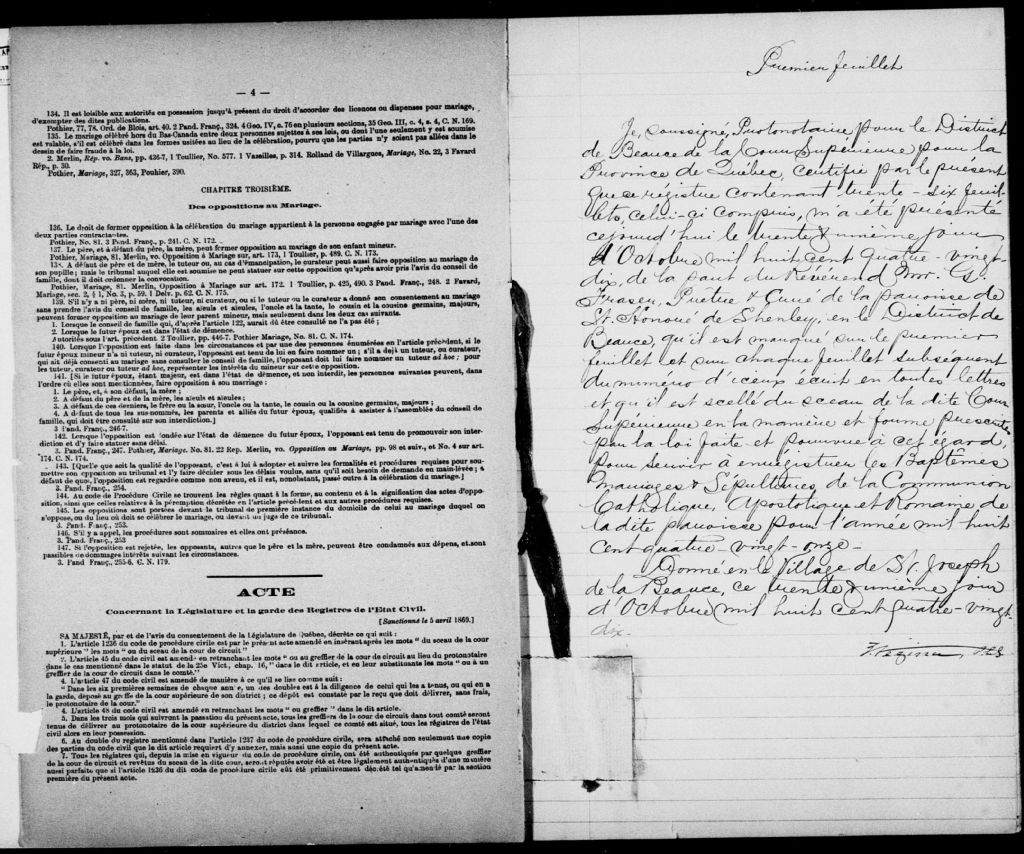 — 4 —
134. Il est loisible aux autorités en possession jusqu'à présent du droit d'accorder des licences ou dispenses pour mariage,
d'exempter des dites publications.
Pothier, 77, 78. Ord. de Blois, art. 40. 2 Pand. Franç., 324. 4 Geo. IV, c. 76 en plusieurs sections, 35 Geo. III, c. 4, s. 4, C. N. 169.
135. Le mariage célébré hors du Bas-Canada entre deux personnes sujettes à ses lois, ou dont l'une seulement y est soumise
est valable, s'il est célébré dans les formes usitées au lieu de la célébration, pourvu que les parties n'y soient pas allées dans le
dessin de faire fraude à la loi.
2. Merlin, Rép. vo. Bans, pp. 436-7, 1 Toullier, No. 577. 1 Vazeilles, p. 314. Rolland de Villargues, Mariage, No. 22, 3 Favard
Rép., p. 30.
Pothier, Mariage, 327, 363, Pouhier, 390.
CHAPITRE TROISIÈME.
Des oppositions au Mariage.
136. Le droit de former opposition à la célébration du mariage appartient à la personne engagée par mariage avec l'une des
deux parties contractantes.
Pothier, No. 81. 3 Pand. Franç., p. 241. C. N. 172.
137. Le père, et à défaut du père, la mère, peut former opposition au mariage de son enfant mineur.
Pothier, Mariage, 81. Merlin, vo. Opposition à Mariage sur, art. 173, 1 Toullier, p. 489. C. N. 173.
138. A défaut de père et de mère, le tuteur ou, au cas d'émancipation, le curateur peut aussi faire opposition au mariage de
son pupille; mais le tribunal auquel elle est soumise ne peut statuer sur cette opposition qu'après avoir pris l'avis du conseil de
famille, dont il doit ordonner la convocation.
Pothier, Mariage, 81. Merlin, Opposition à Mariage sur art. 172. 1 Toullier, p. 425, 490. 3 Pand. Franç., 248. 2 Favard,
Mariage, sec. 2, § 1, No. 3, p. 59. 1 Delv. p. 62. C. N. 175.
139. S'il n'y a ni père, ni mère, ni tuteur, ni curateur, ou si le tuteur ou le curateur a donné son consentement au mariage
sans prendre l'avis du conseil de famille, les aïeuls et aïeules, l'oncle et la tante, le cousin et la cousine germains, majeurs,
peuvent former opposition au mariage de leur parent mineur, mais seulement dans les deux cas suivants.
1. Lorsque le conseil de famille qui, d'après l'article 122, aurait dû être consulté ne l'a pas été;
2. Lorsque le futur époux est dans l'état de démence.
Autorités sous l'art. précédent. 2 Toullier, pp. 446-7. Pothier Mariage, No. 81. C. N. 174.
140. Lorsque l'opposition est faite dans les circonstances et par une des personnes énumérées en l'article précédent, si le
futur époux mineur n'a ni tuteur, ni curateur, l'opposant est tenu de lui en faire nommer un; s'il a déjà un tuteur, ou curateur,
qui ait déjà consenti au mariage sans consulter le conseil de famille, l'opposant doit lui faire nommer un tuteur ad hoc; pour
les tuteur, curateur ou tuteur ad hoc, représenter les intérêts du mineur sur cette opposition.
141. [Si le futur époux, étant majeur, est dans l'état de démence, et non interdit, les personnes suivantes peuvent, dans
l'ordre où elles sont mentionnées, faire opposition à son marriage:
1. Le père, et, à son défaut, la mère;
2. A défaut du père et de la mère, les aïeuls et aïeules;
3. A défaut de ces derniers, le frère ou la sœur, l'oncle ou la tante, le cousin ou la cousine germains, majeurs;
4. A défaut de tous les sus-nommés, les parents et alliés du futur époux, qualifiés à assister à l'assemblée du conseil de
famille, qui doit être consulté sur son interdiction.]
3 Pand. Franç., 246-7.
142. Lorsque l'opposition est fondée sur l'état de démence du futur époux, l'opposant est tenu de promouvoir son inter-
diction et d'y faire statuer sans délai.
3. Pand. Franç., 247. Pothier, Mariage, No. 81. 22 Rep. Merlin, vo. Opposition ou Mariage, pp. 98 et suiv., et No. 4 sur art.
174. C. N. 174.
143. [Quelle que soit la qualité de l'opposant, c'est à lui à adopter et suivre les formalités et procédures requises pour sou-
mettre son opposition au tribunal et l'y faire décider sous les délais voulus, sans qu'il soit besoin de demande en main-levée; à
défaut de quoi, l'opposition est regardée comme non avenu, et il est, nonobstant, passé outre à la célébration du mariage.]
3. Pand. Franç., 254.
144. Au code de Procédure Civile se trouvent les règles quant à la forme, au contenu et à la signification des actes d'oppo-
sition, ainsi que celles relatives à la péremption décrétée en l'article précédent et aux autres procédures requises.
145. Les oppositions sont portées devant le tribunal de première instance du domicile de celui au mariage duquel on
s'oppose, ou du lieu où doit se célébrer le mariage, ou devant un juge de ce tribunal.
3. Pand. Franç., 253.
146. S'il y a appel, les procédures sont sommaires et elles ont préséance.
3. Pand. Franç., 253
147. Si l'opposition est rejetée, les opposants, autres que le père et la mère, peuvent être condamnés aux dépens, et sont
passibles de dommages intérêts suivant les circonstances.
3. Pand Franç., 255-6. C. N. 179.
ACTE
Concernant la Législature et la garde des Registres de l'Etat Civil.
[Sanctionné le 5 avril 1869.]
SA MAJESTÉ, par et de l'avis du consentement de la Législature de Québec, décrète ce qui suit:
1. L'article 1236 du code de procédure civile est par le présent acte amendé en insérant après les mots "du sceau de la cour
supérieure" les mots "ou du sceau de la cour de circuit"
2. L'article 45 du code civil est amendé en retranchant les mots "ou au greffier de la cour de circuit au lieu du protonotaire
dans le cas mentionné dans le statut de la 25e Vict., chap. 16," dans le dit article, et en leur substituants les mots "ou à un
greffier de la cour de circuit dans le comté."
4. L'article 47 du code civil est amendé de manière à ce qu'il se lise comme suit:
"Dans les six premières semaines de chaque année, un des doubles est à la diligence de celui qui les a tenus, ou qui en a
la garde, déposé au greffe de la cour supérieure de son district; ce dépôt est constaté par le reçu que doit délivrer, sans frais,
le protonotaire de la cour."
4. L'article 48 du code civil est amendé en retranchant les mots "ou greffier" dans le dit article.
5. Dans les trois mois qui suivront la passation du présent acte, tous les greffiers de la cour de circuit dans tout comté seront
tenus de délivrer au protonotaire de la cour supérieure du district dans lequel ce comté est situé, tous les régistres de l'état
civil alors en leur possession.
6. Au double du registre mentionné dans l'article 1237 du code de procédure civile, sera attaché non seulement une copie
des parties du code civil que le dit article requiert d'y annexer, mais aussi une copie du présent acte.
7. Tous les régistres qui, depuis la mise en vigueur du code de procédure civile, ont été authentiqués par quelque greffier
de la cour de circuit et revêtus du sceau de la dite cour, seront réputés avoir été et être légalement authentiqués d'une manière
aussi parfaite que si l'article 1236 du dit code de procédure civile eût été primitivement décrété tel qu'amendé par la section
première du présent acte.
Premier feuillet
Je, soussigné, Protonotaire pour le District
de Beauce de la Cour Supérieure pour la
Province de Québec, certifie par le présent
que ce régistre contenant trente-six feuil-
lets, celui-ci compris, m'a été présenté
ce jourd'hui le trente & unième jour
d'Octobre mil huit cent quatre-vingt-
dix, de la part du Révérend Mr. G.
Fraser, Prêtre & Curé de la paroisse de
St. Honoré de Shenley, en le District de
Beauce, qu'il est marqué sur le premier
feuillet et sur chaque feuillet subséquent
du numéro d'iceux écrit en toutes lettres
et qu'il est scellé du sceau de la dite Cour
Supérieure en la manière et forme prescrites
par la loi faite et pourvue à cet égard,
pour servir à enregistrer les Baptêmes
mariages & Sépultures, de la Communion
Catholique, Apostolique et Romaine de
la dite paroisse pour l'année mil huit
cent quatre-vingt-onze-
Donné en le Village de St. Joseph
de la Beauce, ce trente & unième jour
d'Octobre mil huit cent quatre-vingt-
dix.